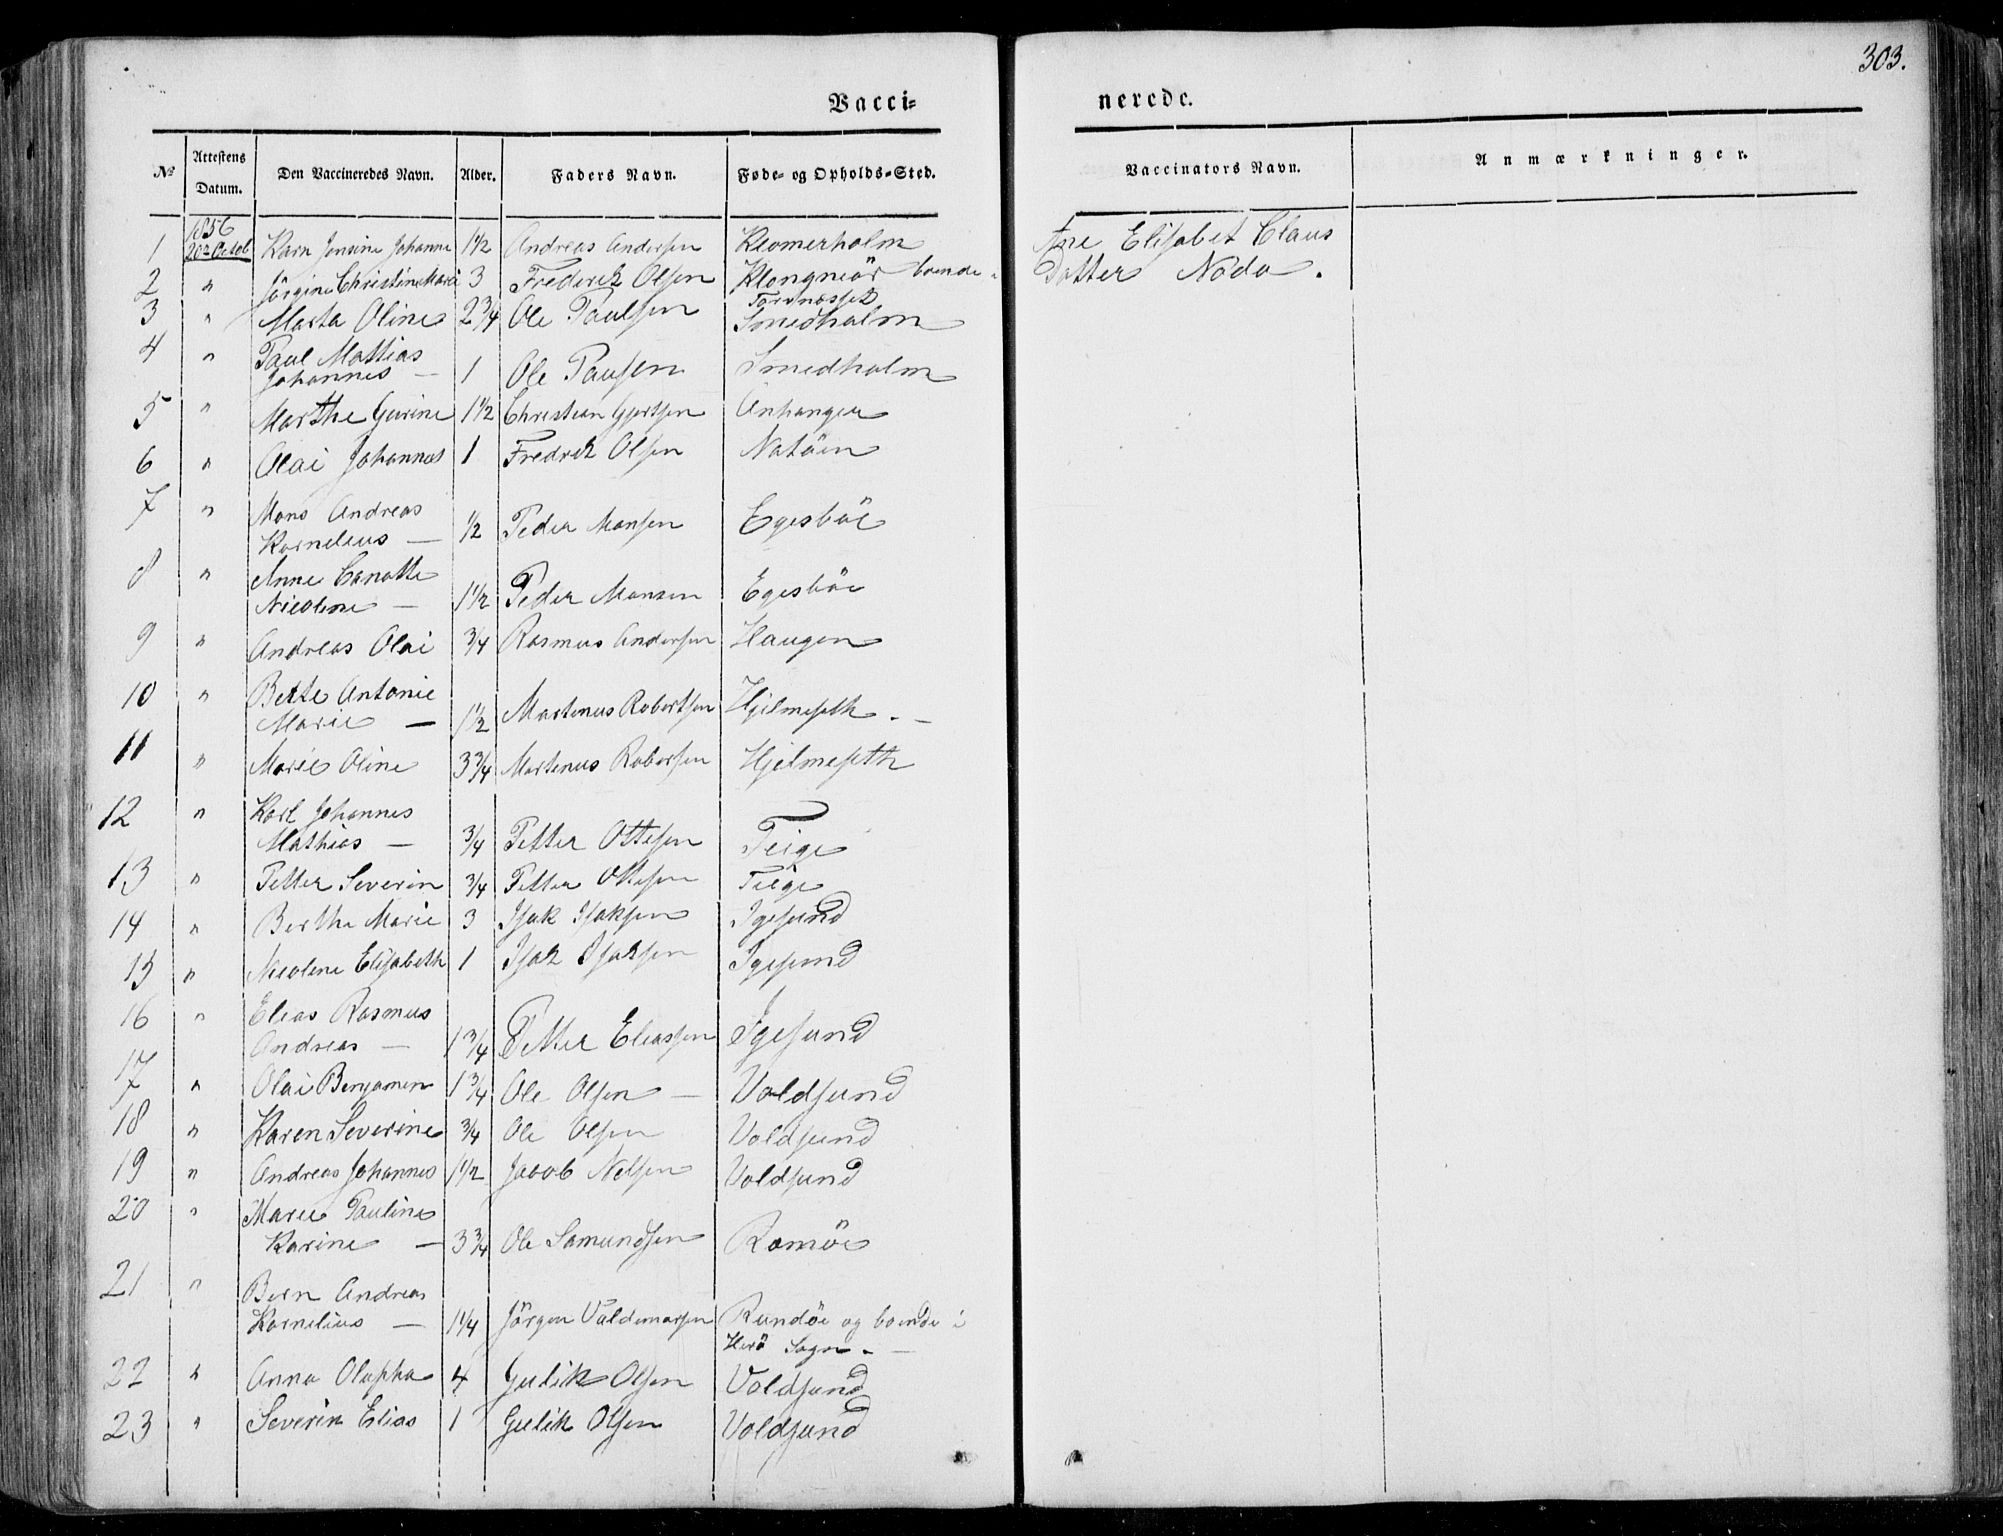 303.
Vacci-
nerede.
No
Attestens Datum.
Den Vaccineredes Navn.
Alder.
Faders Navn.
Føde- og Opholds-Sted.
Vaccinators Navn.
Anmærkninger.
1856
1 20de Octob Karn Jensine Johanne 1½ Andreas Andersen Kromerholm Ane Elisabet Claus
2 " Jörgine Christine Marie 3 Frederik Olsen Klongneör boende Datter Nödo.
Tornnesset
3 " Marta Oline 2¾ Ole Paulsen Smedholm
4 " Paul Mattias
Johannes — 1 Ole Pausen Smedholm
5 " Marthe Gurine 1½ Christian Gjertsen
6 " Olai Johannes 1 Fredrek Olsen Notöen
7 " Mons Andreas
Kornelius — ½ Peder Monsen Egesböe
8 " Anne Canatte
Nicoline — 1½ Peder Monsen Egesböe
9 " Andreas Olai ¾ Rasmus Andersen Haugen
10 " Bertte Antonie
Marie — 1½ Martinus Robertsen Hjelmeseth. —
11 " Marie Oline 3¾ Martinus Robersen Hjelmeseth
12 " Karl Johannes
Mathias — ¾ Petter Ottesen Teige
13 " Petter Severin ¾ Petter Ottesen Teige
14 " Berthe Marie 3 Isak Isaksen Igesund
15 " Nicoline Elisabeth 1 Isak Isaksen Igesund
16 " Elias Rasmus
Andreas — 1¾ Petter Eliassen Igesund
17 " Olai Benjamen 1¾ Ole Olsen — Voldsund
18 " Karen Severine ¾ Ole Olsen Voldsund
19 " Andreas Johannes 1½ Jacob Nelsen Voldsund
20 " Marie Pauline
Karine — 3¾ Ole Samundsen Romöe
21 " Bern Andreas
Kornelius — 1¼ Jörgen Valdemarsen Rundöe og boende i
Herö Sogn. —
22 " Anna Olepha 4 Gulik Olsen Voldsund
23 " Severin Elias 1 Gulik Olsen Voldsund